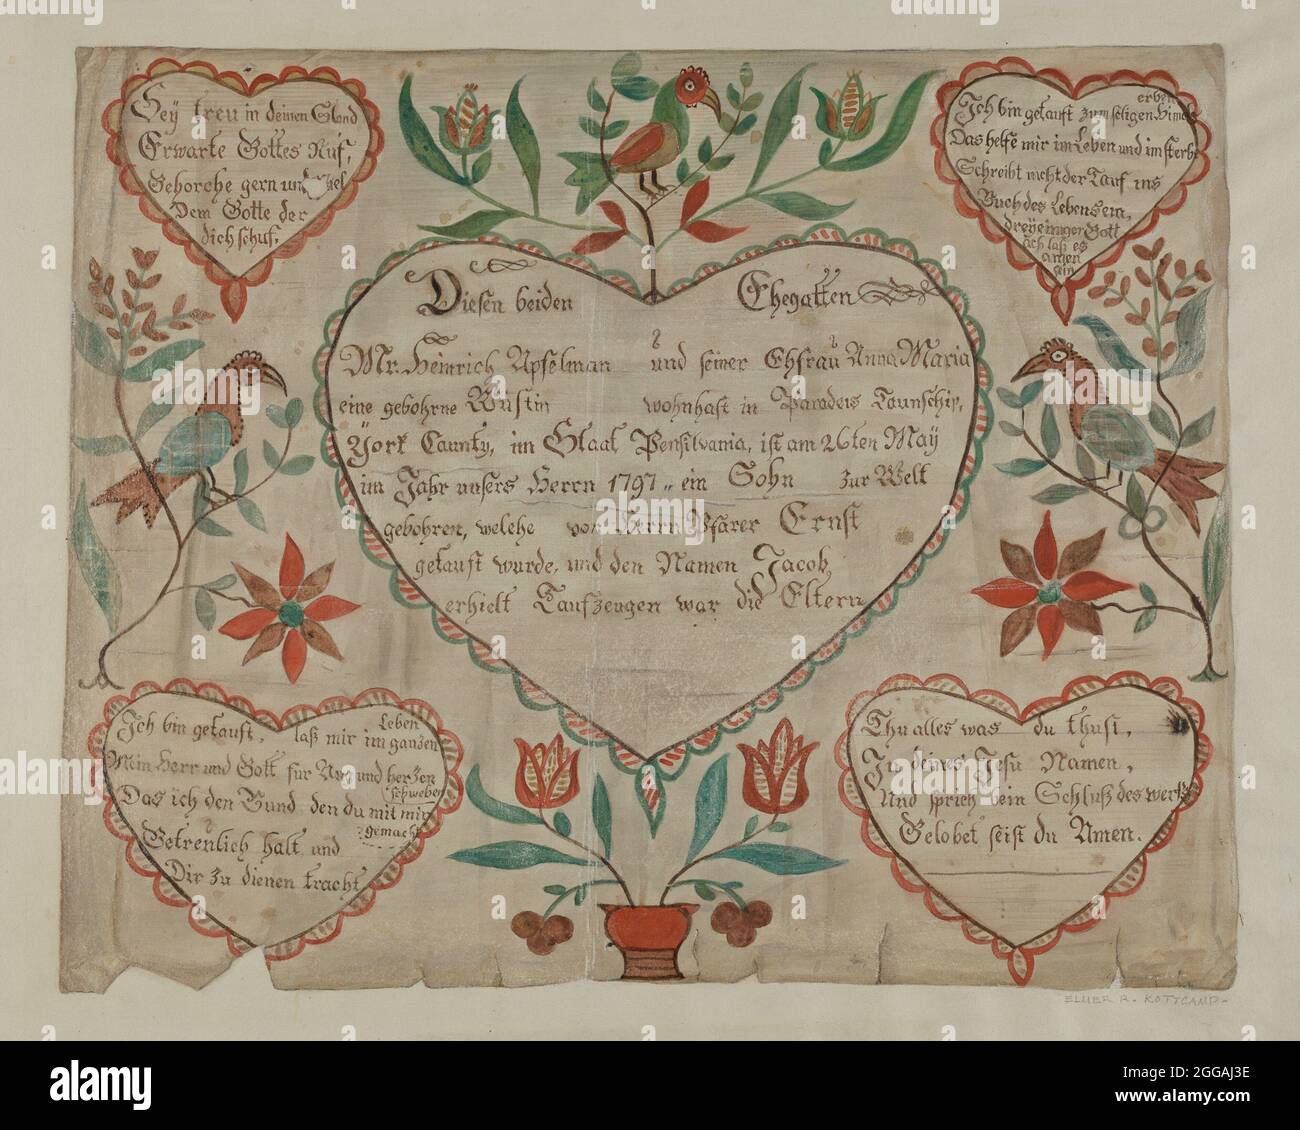 Sey treu in deinen Stand
Erwarte Gottes Ruf,
Gehorche gern und
Dem Gotte der
dich schuf.
erben
Ich bin getauft zum seligen Himel
Das helfe mir im Leben und im sterben
Schreibt nicht der Tauf ins
Buch des Lebens ein,
dreyeiniger Gott
ach laß es
sein
Diesen beiden Ehegatten
Mr. Heinrich Apfelman und seiner Ehfrau Anna Maria
eine gebohrne Wüstin wohnhaft in Paradeis Taunschip,
York Caunty, im Staat Pensilvania, ist am 26ten May
im Jahr unsers Herrn 1797,, ein Sohn zur Welt
gebohren, welche von Herrn Pfarer Ernst
getauft wurde, und den Namen Jacob
erhielt Taufzeugen war die Eltern
Ich bin getauft, laß mir im ganzen Leben
Mein Herr und Gott für Aug und herzen schweben
Das ich den Bund den du mit mir gemacht
Getreulich halt und
Dir zu dienen tracht
Thu alles was du thust,
In deines Jesu Namen,
Und sprich beim Schluß des werks
Gelobet seist du Amen.
ELMER R. KOTTCAMP-
alamy
Image ID: 2GGAJ3E
www.alamy.com